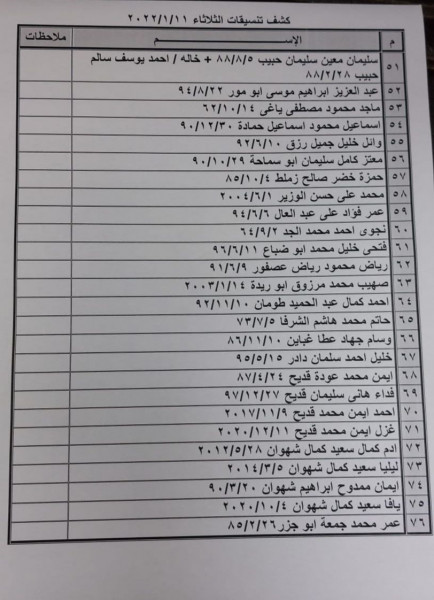 كشف تنسيقات الثلاثاء ٢٠٢٢/١/١١
م الإســـم ملاحظات
٥١ سليمان معين سليمان حبيب ٨٨/٨/٥ + خاله / احمد يوسف سالم
حبيب ٨٨/٢/٢٨
٥٢ عبد العزيز ابراهيم موسى ابو مور ٩٤/٨/٢٢
٥٣ ماجد محمود مصطفى ياغى ٦٢/١٠/١٤
٥٤ اسماعيل محمود اسماعيل حمادة ٩٠/١٢/٣٠
٥٥ وائل خليل جميل رزق ٩٢/٦/١٠
٥٦ معتز كامل سليمان ابو سماحة ٩٠/١٠/٢٩
٥٧ حمزة خضر صالح زملط ٨٥/١٠/٤
٥٨ محمد على حسن الوزير ٢٠٠٤/٦/١
٥٩ عمر فؤاد على عبد العال ٩٤/٦/٦
٦٠ نجوى احمد محمد الجد ٦٤/٩/٢
٦١ فتحى خليل محمد ابو ضباع ٩٦/٦/١١
٦٢ رياض محمود رياض عصفور ٩١/٦/٩
٦٣ صهيب محمد مرزوق ابو ريدة ٢٠٠٣/١/١٤
٦٤ احمد كمال عبد الحميد طومان ٩٢/١١/١٠
٦٥ حاتم محمد هاشم الشرفا ٧٣/٧/٥
٦٦ وسام جهاد عطا غباين ٨٦/١١/١٠
٦٧ خليل احمد سلمان دادر ٩٥/٥/١٥
٦٨ ايمن محمد عودة قديح ٨٧/٤/٢٤
٦٩ فداء هانى سليمان قديح ٩٧/١٢/٢٧
٧٠ احمد ايمن محمد قديح ٢٠١٧/١١/٩
٧١ غزل ايمن محمد قديح ٢٠٢٠/١٢/١١
٧٢ ادم كمال سعيد كمال شهوان ٢٠١٢/٥/٢٨
٧٣ ليليا سعيد كمال شهوان ٢٠١٤/٣/٥
٧٤ ايمان ممدوح ابراهيم شهوان ٩٠/٣/٢٠
٧٥ يافا سعيد كمال شهوان ٢٠٢٠/١٠/٤
٧٦ عمر محمد جمعة ابو جزر ٨٥/٢/٢٦